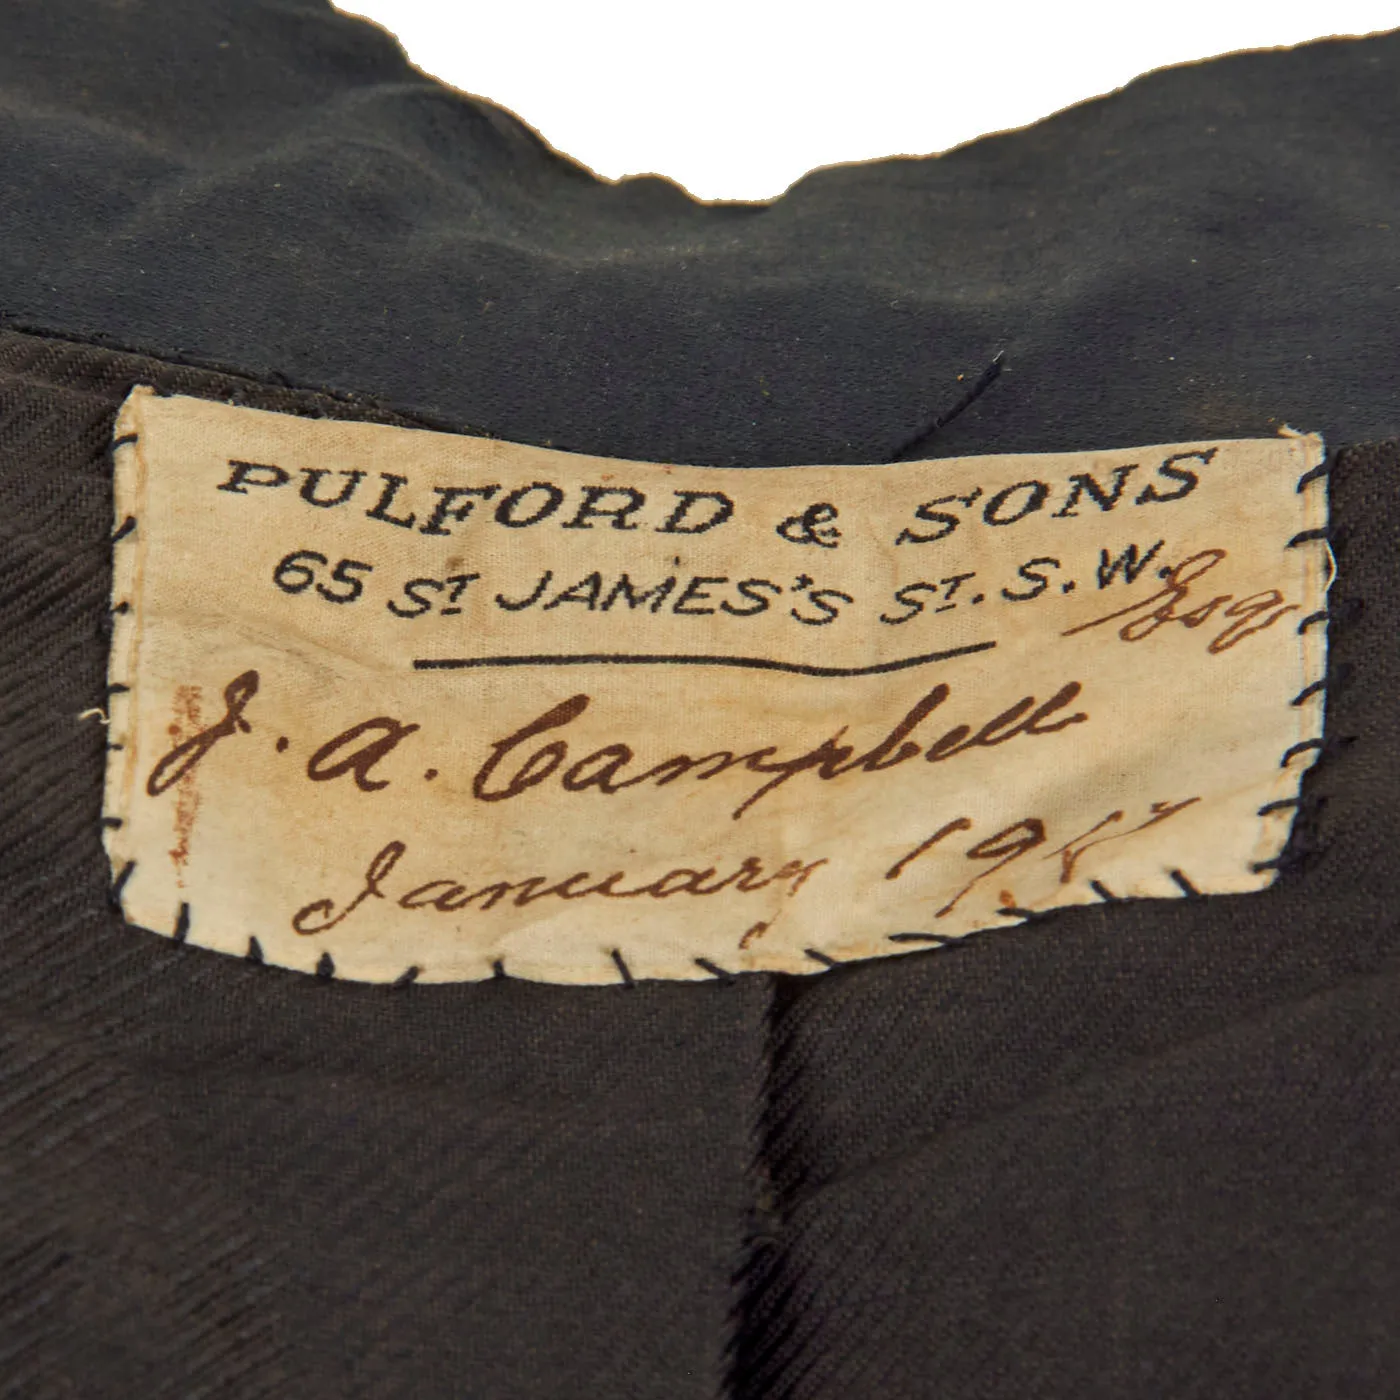 PULFORD & SONS
65 ST JAMES'S ST. S. W.
J. A. Campbell Esq
January